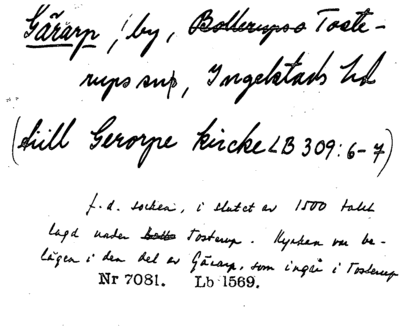 Gärarp, by, Bollerups Toste-
rups snr, Ingelstads hd
(till Gerorpe kircke LB 309:6-7)
f.d. socken, i slutet av 1500 talet
lagd under Tosterup. Kyrkan var be-
lägen i den del av Gärarp, som ingår i Tosterup
Nr 7081. Lb 1569.